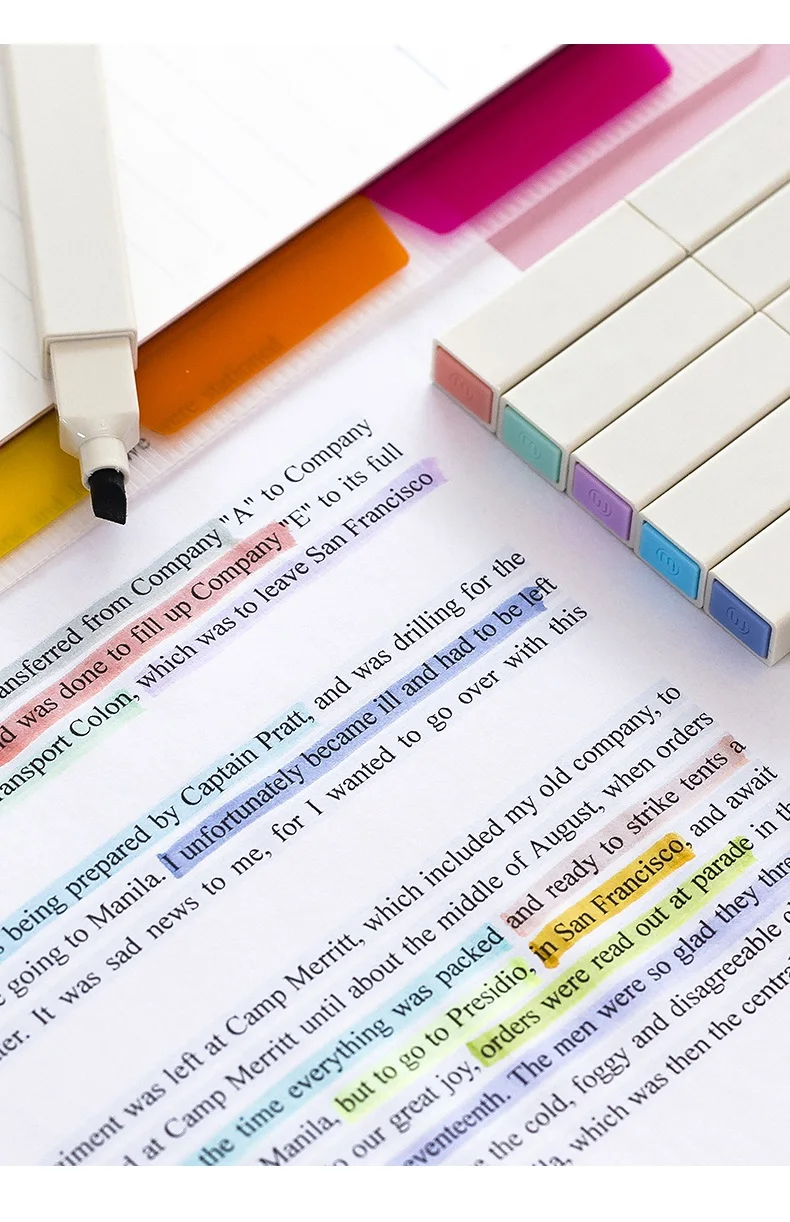 were stational
ansferred from Company "A" to Company
d was done to fill up Company "E" to its full
ransport Colon, which was to leave San Francisco
being prepared by Captain Pratt, and was drilling for the
going to Manila. I unfortunately became ill and had to be left
er. It was sad news to me, for I wanted to go over with this
riment was left at Camp Merritt, which included my old company, to
d at Camp Merritt until about the middle of August, when orders
the time everything was packed and ready to strike tents a
Manila, but to go to Presidio, in San Francisco, and await
o our great joy, orders were read out at parade in th
eventeenth. The men were so glad they thre
the cold, foggy and disagreeable
la, which was then the central